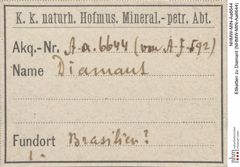 K. k. naturh. Hofmus. Mineral.- petr. Abt.
Akq.-Nr. A. a. 6644 (von A. f. 592)
Name Diamant
Fundort Brasilien?
1.
NHMW-MIN-Aa6644
Etiketten zu Diamant (NHMW-MIN-Aa6644)